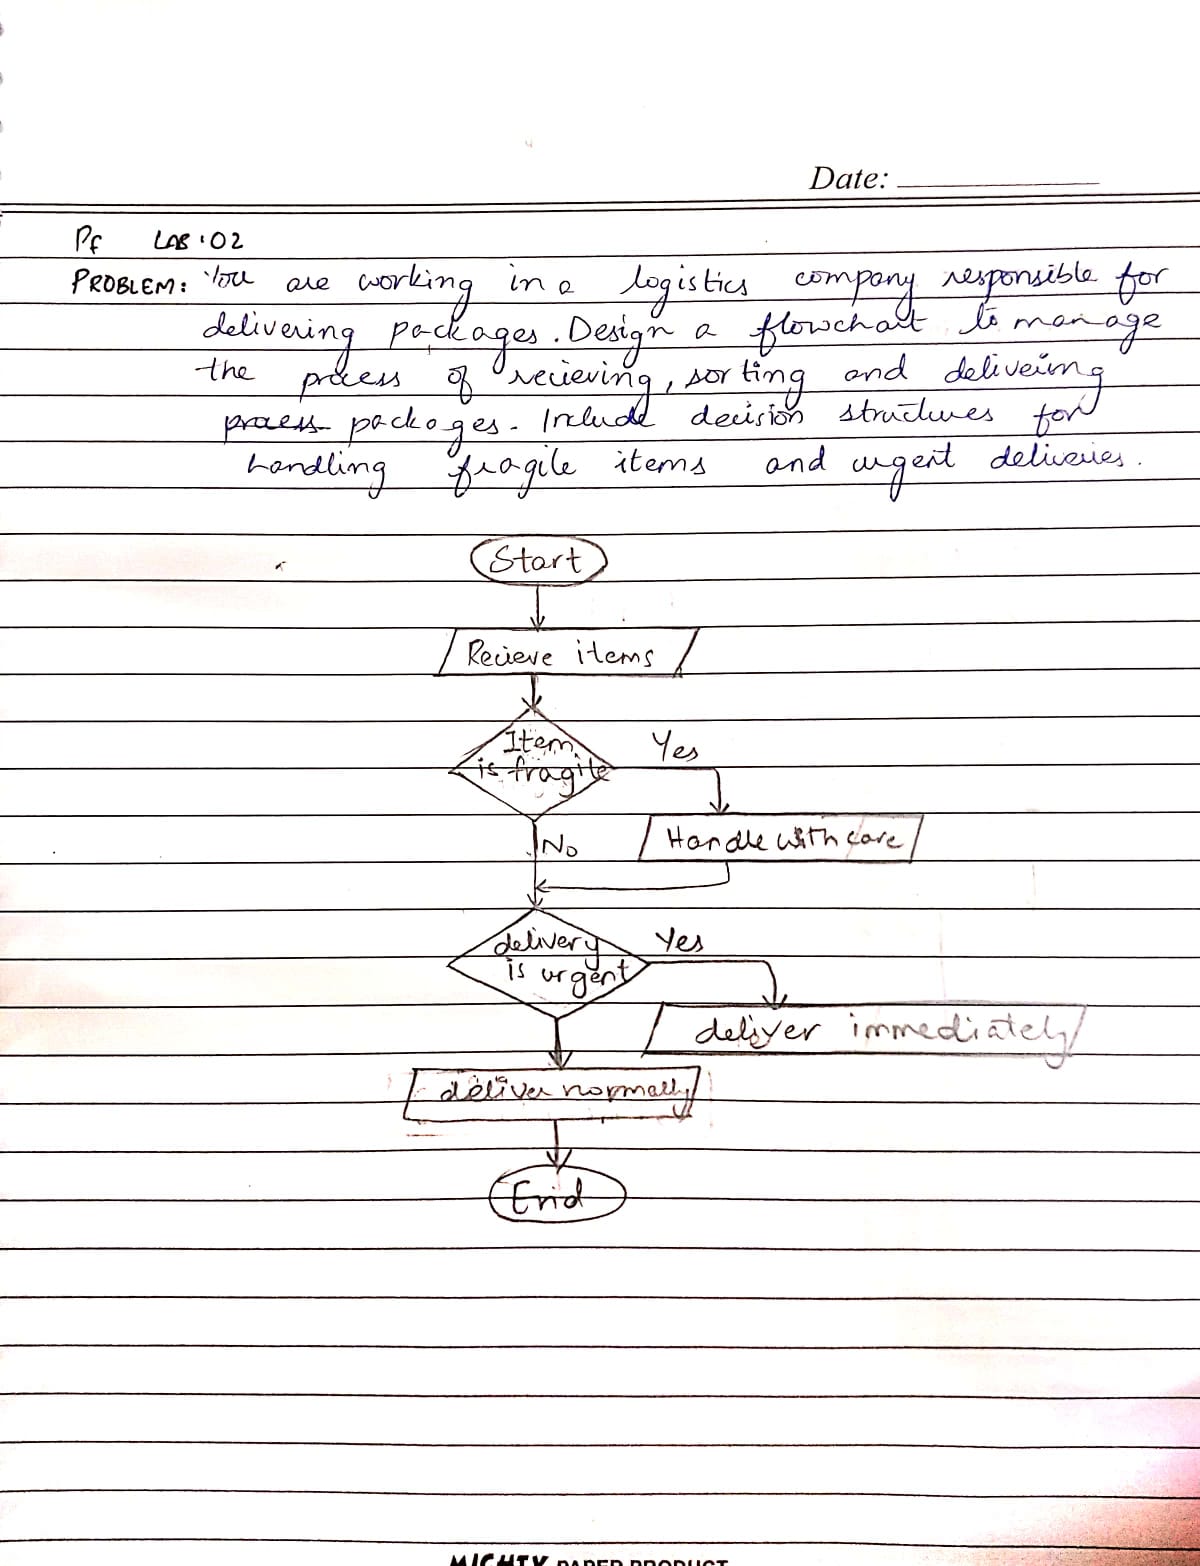 Date:
Pf LAB:02
PROBLEM: You are working in a logistics company responsible for
delivering packages. Design a flowchart to manage
the process of recieving, sorting and delivering
process packages. Include decision structures for
handling fragile items and urgent deliveries.
Start
Recieve items
Item
is fragile
Yes
No
Handle with care
delivery
is urgent
Yes
deliver immediately
deliver normally
End
MIGHTY PAPER PRODUCT